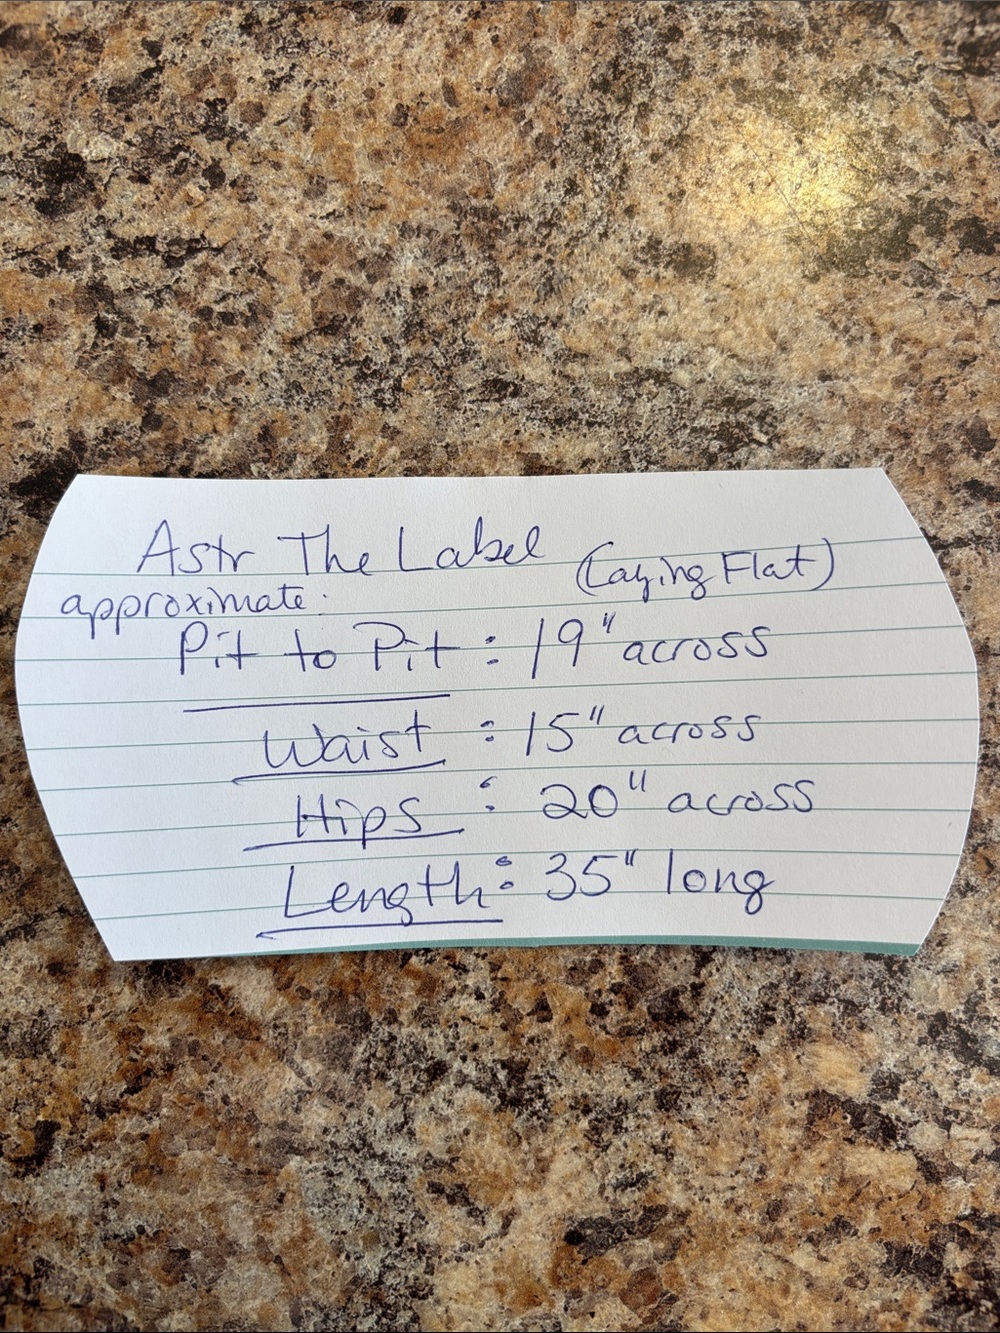 Astr The Label
(Laying Flat)
approximate:
Pit to Pit : 19" across
Waist : 15" across
Hips : 20" across
Length: 35" long